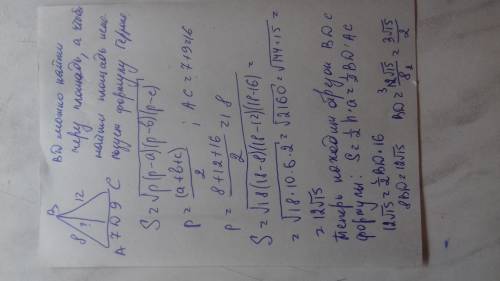 BD можно найти
через площадь, а чтоб
найти площадь испо
формулу Герона
B
8 12
?
A 7 D 9 C
S = √p(p-a)(p-b)(p-c)
p = (a+b+c)/2 ; AC = 7+9=16
p = (8+12+16)/2 = 18
S = √18(18-8)(18-12)(18-16) =
= √18·10·6·2 = √2160 = √144·15 =
= 12√15
Теперь находим BD с
формулы: S = 1/2 h·a = 1/2 BD·AC
12√15 = 1/2 BD·16
8BD = 12√15 BD = 12√15/8 = 3√15/2
3
2